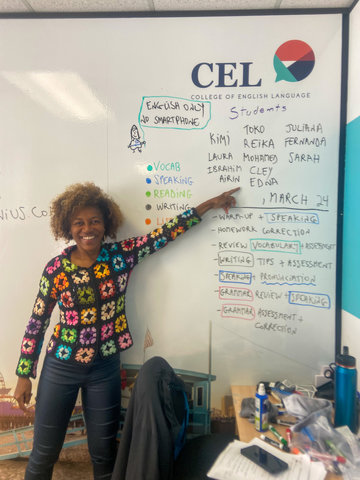 CEL
COLLEGE OF ENGLISH LANGUAGE
ENGLISH ONLY
NO SMARTPHONE
Students
KIMI TOKO JULIANA
REIKA FERNANDA
LAURA MOHAMED SARAH
IBRAHIM CLEY
AIRIN EDNA
VOCAB
SPEAKING
READING
WRITING
, MARCH 24
- WARM-UP + SPEAKING
- HOMEWORK CORRECTION
- REVIEW VOCABULARY + ASSESSMENT
- WRITING TIPS + ASSESSMENT
- SPEAKING + PRONUNCIATION
- GRAMMAR REVIEW + SPEAKING
- GRAMMAR ASSESSMENT + CORRECTION